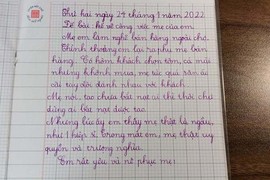 Thứ hai ngày 24 tháng 1 năm 2022
Đề bài: kể về công việc mẹ của em.
Mẹ em làm nghề bán hàng ngoài chợ.
Thỉnh thoảng em lại ra phụ mẹ bán
hàng. Có hôm khách chọn tôm, cá mãi
nhưng khônh mua, mẹ tức quá xắn áo
cãi tay đôi dành nhau với khách.
Mẹ nói, tao chưa bắt nạt ai thì thôi, chứ
đừng ai bắt nạt được tao.
Những lúc ấy em thấy mẹ thật là ngầu,
như 1 hiệp sĩ. Trong mắt em, mẹ thật uy
quyền và trượng nghĩa.
Em rất yêu và nể phục mẹ!